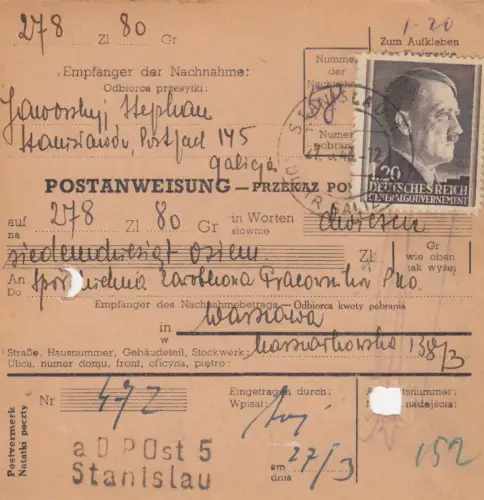 278 Zl 80 Gr
1·20
Zum Aufkleben
Empfänger der Nachnahme:
Odbiorca przesyłki:
Nummer
der
Numer
pobran
Jaworskyj Stephan
Stanislawów, Postfach 145
Galicja
STANISLAU
27.3.43.-12
1.20
DEUTSCHES REICH
GENERALGOUVERNEMENT
POSTANWEISUNG — PRZEKAZ POC
auf
na
278 Zl 80 Gr
in Worten
słownie
dwieście
siedemdziesiąt osiem
Zł
Gr
wie oben
jak wyżej
An
Do
Spółdzielnia Zarobkowa Pracownika Pno.
Empfänger des Nachnahmebetrags — Odbiorca kwoty pobrania
in
w
Warszawa
Straße, Hausnummer, Gebäudeteil, Stockwerk:
Ulica, numer domu, front, oficyna, piętro:
Marszałkowska 138/3
Postvermerk
Notatki poczty
Nr 472
Eingetragen durch:
Wpisał:
am
dnia
27/3
nummer:
nadejścia:
152
a D POst 5
Stanislau